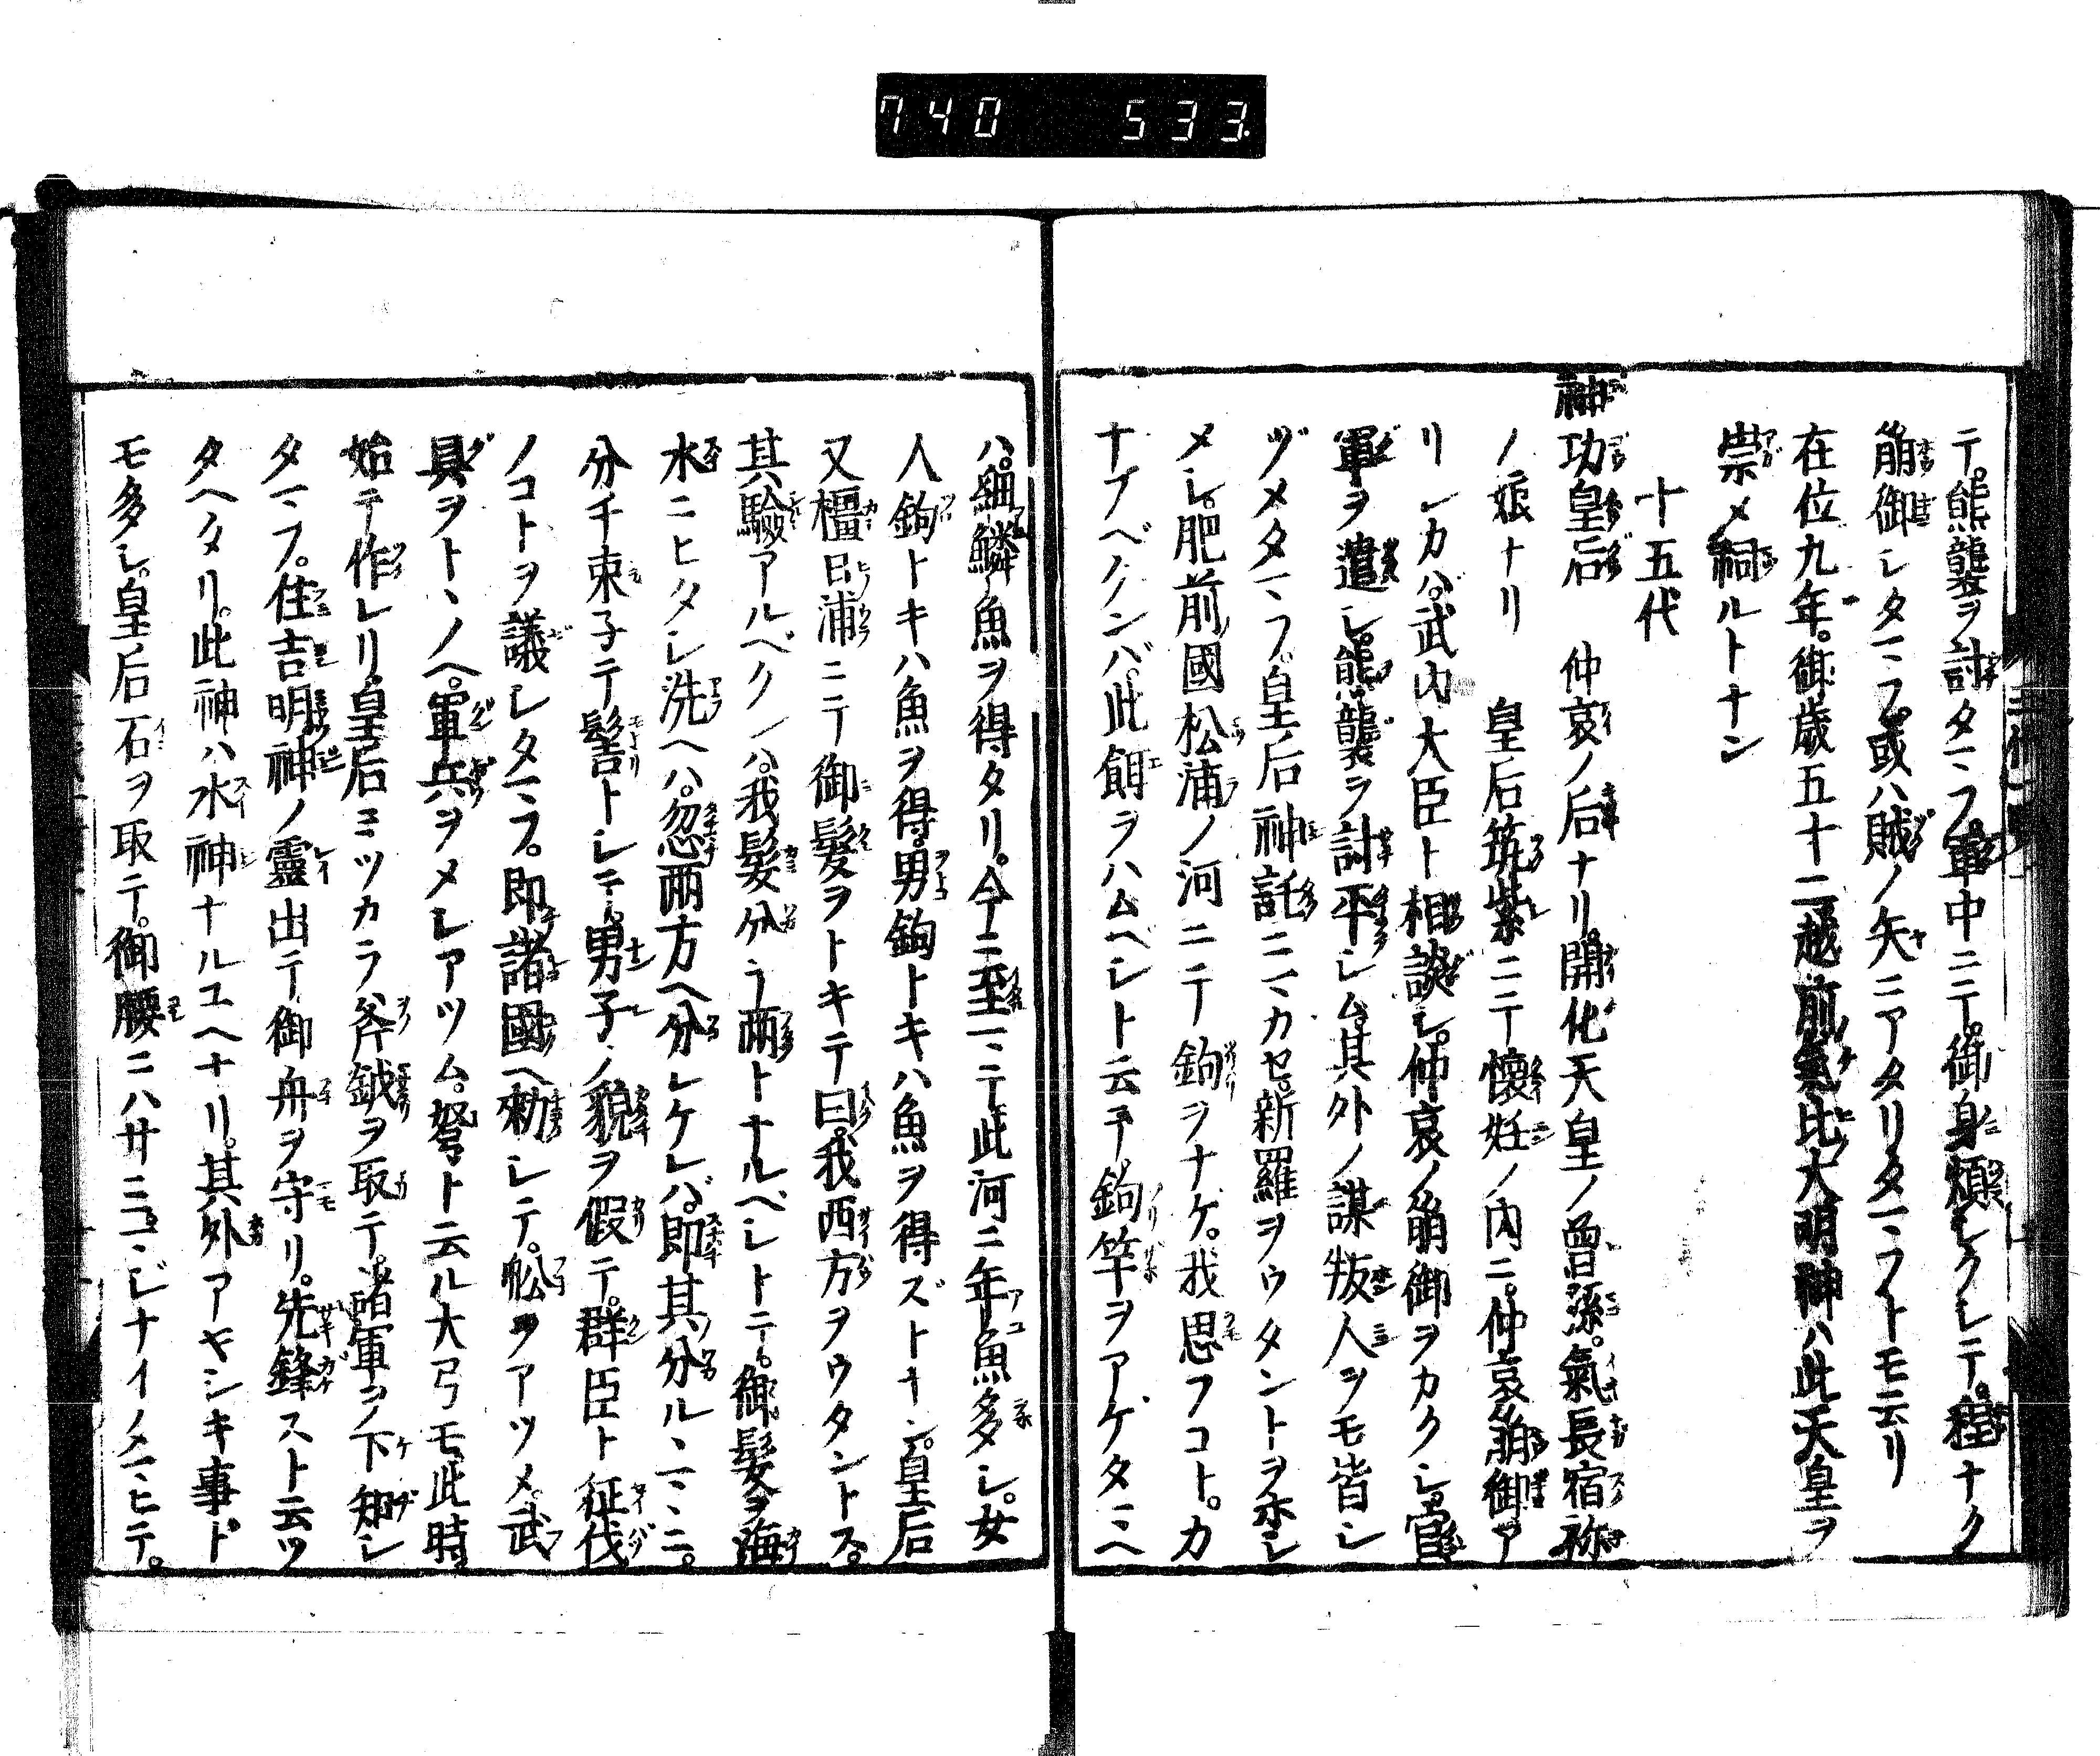 740 533.
テ。熊襲ヲ討タマフ。軍中ニテ。御身煩シクシテ。程ナク
崩御シタマフ。或ハ賊ノ矢ニアタリタマフトモ云リ
在位九年。御歳五十二越前氣比大明神ハ此天皇ヲ
崇メ祠ルトナン
十五代
神功皇后 仲哀ノ后ナリ。開化天皇ノ曾孫。氣長宿祢
ノ娘ナリ 皇后筑紫ニテ懐妊ノ内ニ。仲哀崩御ア
リシカバ。武内大臣ト相談シ。仲哀ノ崩御ヲカクシ。官
軍ヲ遣シ。熊襲ヲ討平シム。其外ノ謀叛人ヲモ皆シ
ヅメタマフ。皇后神託ニマカセ。新羅ヲウタントヲボシ
メシ。肥前國松浦ノ河ニテ鉤ヲナゲ。我思フコト。カ
ナフベクンバ。此餌ヲハムベシト云テ鉤竿ヲアゲタマヘ
ハ。細鱗魚ヲ得タリ。今ニ至マテ此河ニ年魚多シ。女
人鉤トキハ魚ヲ得。男鉤トキハ魚ヲ得ズトナン。皇后
又橿日浦ニテ御髪ヲトキテ曰。我西方ヲウタントス。
其驗アルベクンハ。我髪分テ兩トナルベシトテ。御髪ヲ海
水ニヒタシ洗ヘハ。忽兩方ヘ分レケレバ。即其分ルヽマヽニ。
分チ束子テ髻トシテ。男子ノ貌ヲ假テ。群臣ト征伐
ノコトヲ議シタマフ。即諸國ヘ勅シテ。舩ヲアツメ。武
具ヲトヽノヘ。軍兵ヲメシアツム。弩ト云ル大弓モ此時。
始テ作レリ。皇后ミツカラ斧鉞ヲ取テ。諸軍ヲ下知シ
タマフ。住吉明神ノ靈出テ御舟ヲ守リ。先鋒スト云ツ
タヘタリ。此神ハ水神ナルユヘナリ。其外アヤシキ事ト
モ多シ。皇后石ヲ取テ。御腰ニハサミコヽシナイノマヒテ。